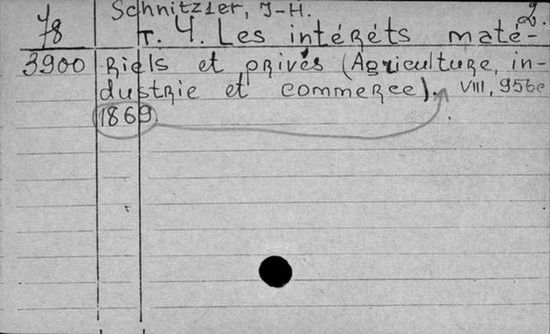 78 Schnitzler, J-H. 2.
т. 4. Les intérêts maté-
3900 riels et privés (Agriculture, in-
dustrie et commerce). VIII, 956c
1869